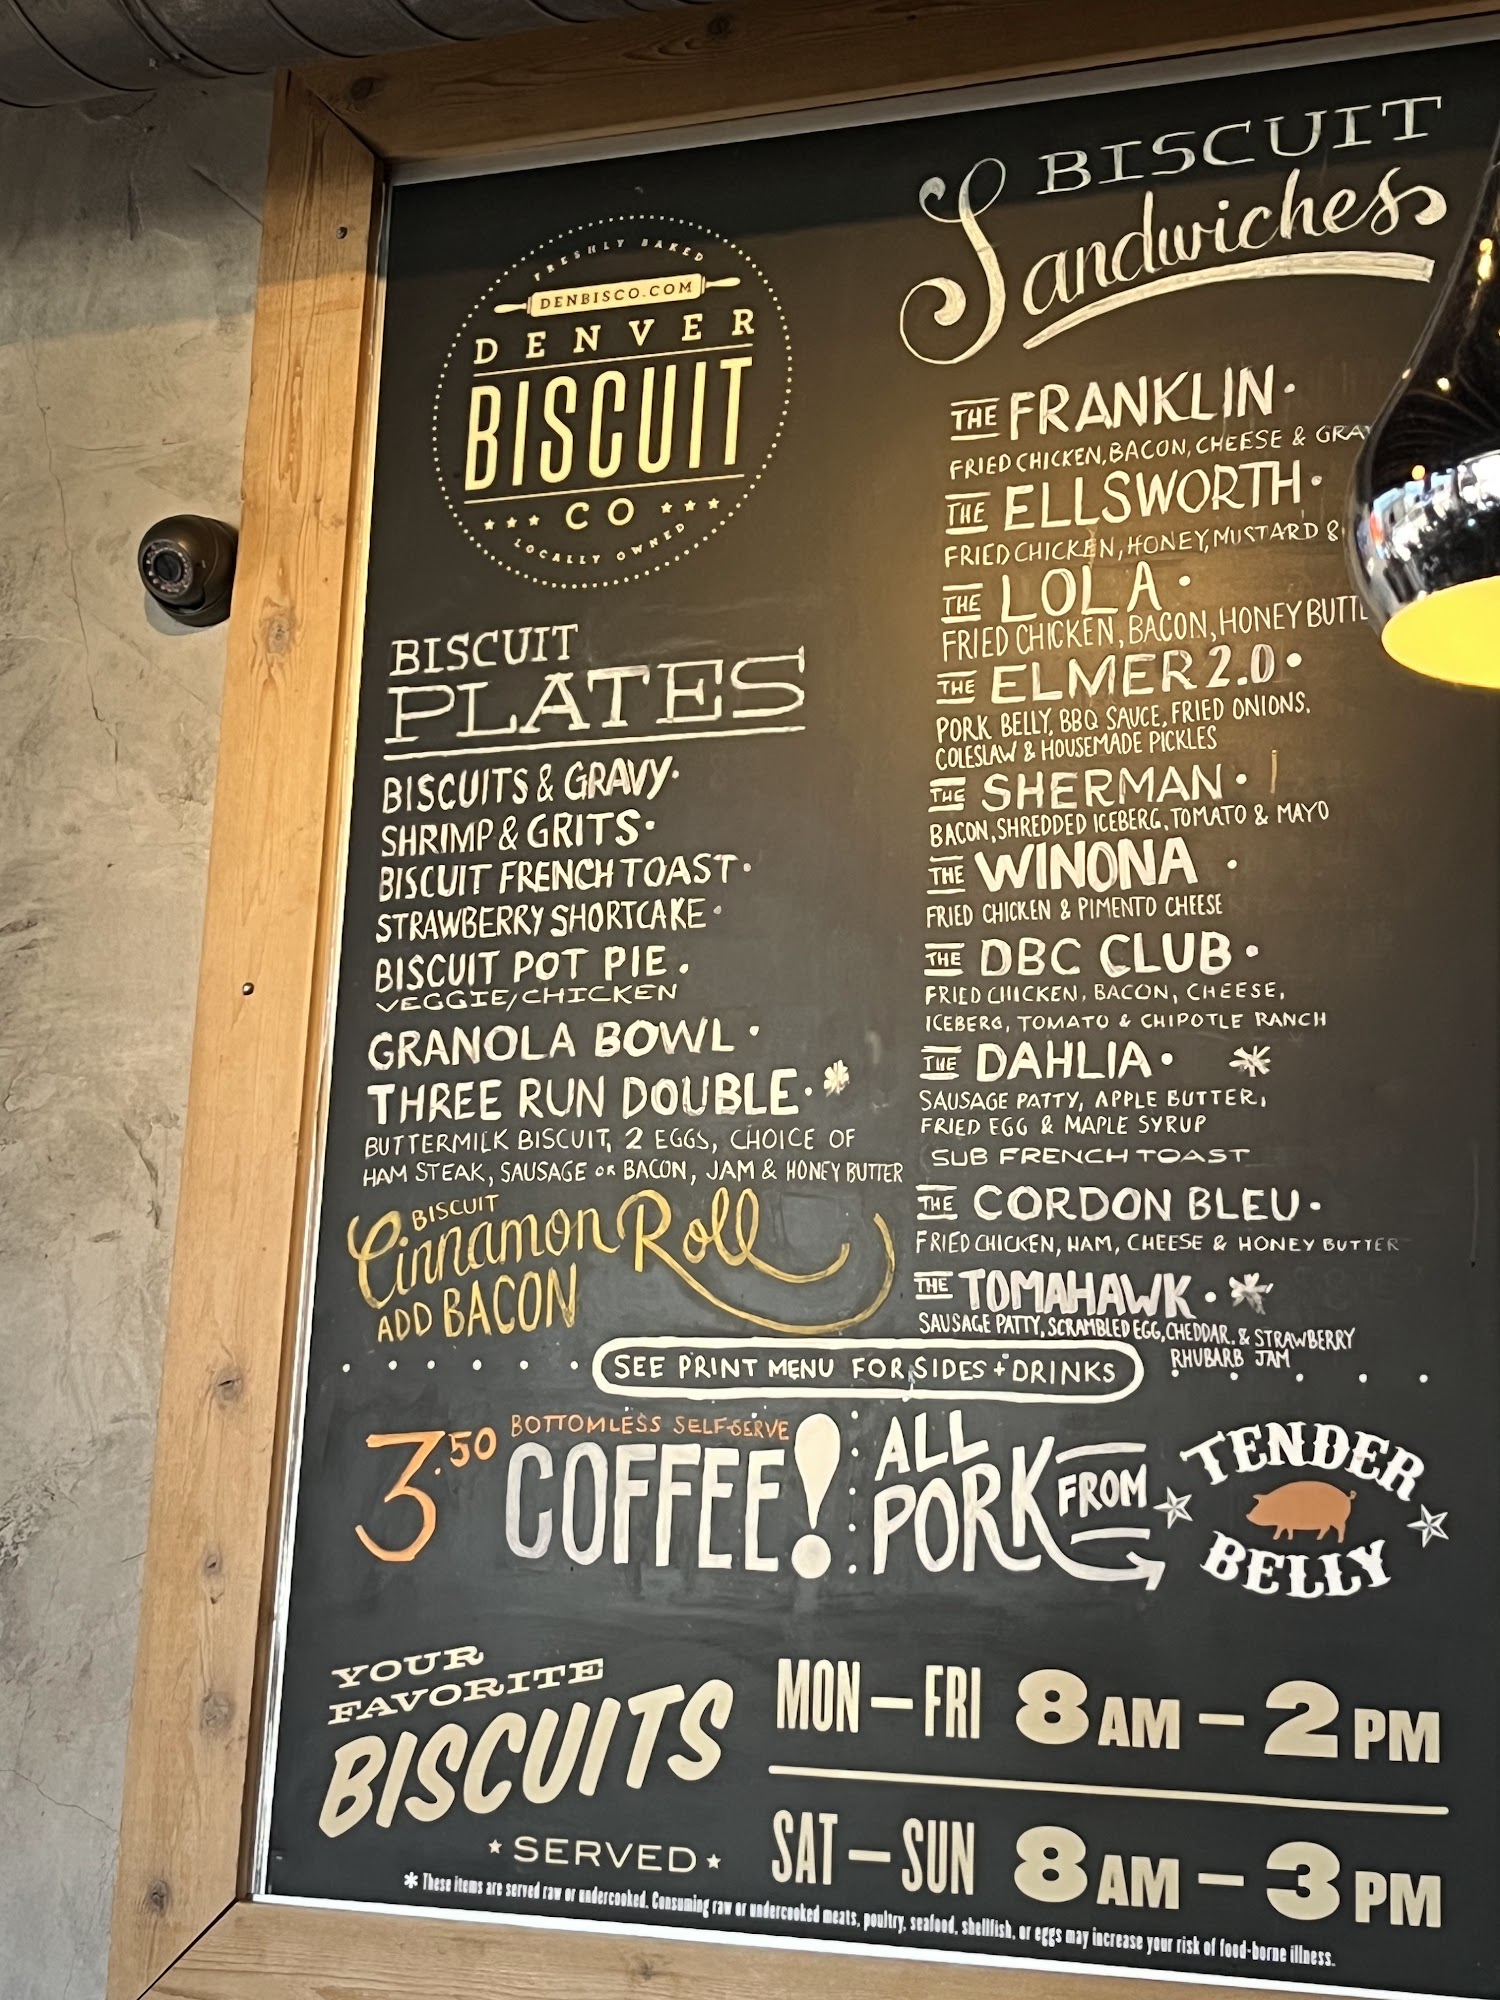 FRESHLY BAKED
DENBISCO.COM
DENVER
BISCUIT
CO
LOCALLY OWNED
BISCUIT
PLATES
BISCUITS & GRAVY.
SHRIMP & GRITS.
BISCUIT FRENCH TOAST.
STRAWBERRY SHORTCAKE.
BISCUIT POT PIE.
VEGGIE/CHICKEN
GRANOLA BOWL.
THREE RUN DOUBLE.*
BUTTERMILK BISCUIT, 2 EGGS, CHOICE OF
HAM STEAK, SAUSAGE OR BACON, JAM & HONEY BUTTER
BISCUIT
Cinnamon Roll
ADD BACON
BISCUIT
Sandwiches
THE FRANKLIN.
FRIED CHICKEN, BACON, CHEESE &
THE ELLSWORTH.
FRIED CHICKEN, HONEY, MUSTARD &
THE LOLA.
FRIED CHICKEN, BACON, HONEY
THE ELMER 2.0.
PORK BELLY, BBQ SAUCE, FRIED ONIONS,
COLESLAW & HOUSEMADE PICKLES
THE SHERMAN.
BACON, SHREDDED ICEBERG, TOMATO & MAYO
THE WINONA.
FRIED CHICKEN & PIMENTO CHEESE
THE DBC CLUB.
FRIED CHICKEN, BACON, CHEESE,
ICEBERG, TOMATO & CHIPOTLE RANCH
THE DAHLIA. *
SAUSAGE PATTY, APPLE BUTTER,
FRIED EGG & MAPLE SYRUP
SUB FRENCH TOAST
THE CORDON BLEU.
FRIED CHICKEN, HAM, CHEESE & HONEY BUTTER
THE TOMAHAWK. *
SAUSAGE PATTY, SCRAMBLED EGG, CHEDDAR. & STRAWBERRY
RHUBARB JAM
SEE PRINT MENU FOR SIDES + DRINKS
3.50 BOTTOMLESS SELF-SERVE
COFFEE!
ALL
PORK FROM
TENDER
BELLY
YOUR
FAVORITE
BISCUITS
SERVED
MON – FRI 8 AM – 2 PM
SAT – SUN 8 AM – 3 PM
* These items are served raw or undercooked. Consuming raw or undercooked meats, poultry, seafood, shellfish, or eggs may increase your risk of food-borne illness.